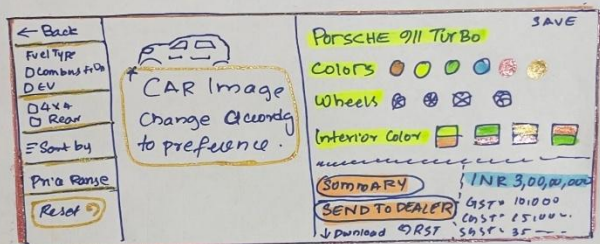 ← Back
Fuel Type
Combustion
EV
4x4
Rear
Sort by
Price Range
Reset
CAR Image
Change according
to preference.
SAVE
PORSCHE 911 TURBO
Colors
Wheels
Interior Color
SUMMARY
SEND TO DEALER
↓ Download RST
INR 3,00,00,000
GST = 101000